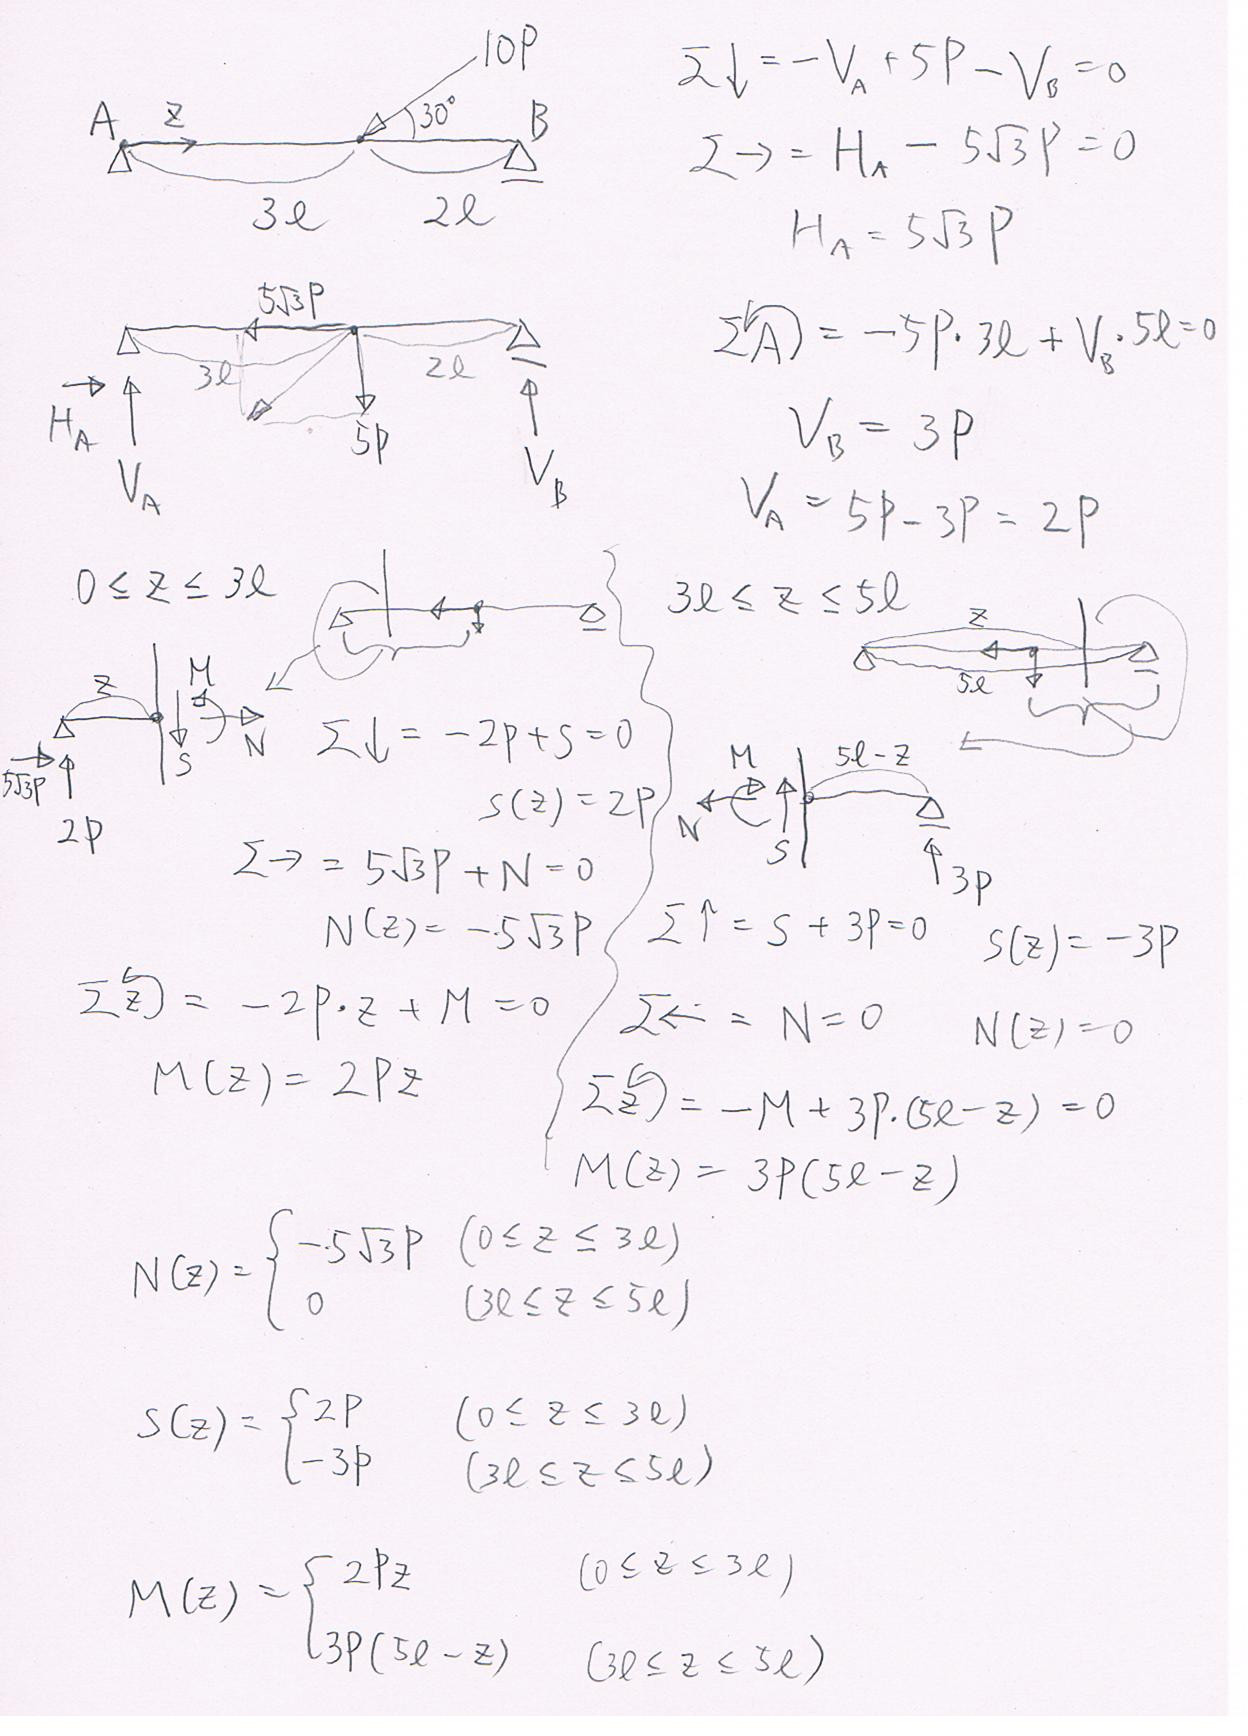 10P
A
z
30°
B
3l
2l
Σ↓ = -V_A + 5P - V_B = 0
Σ→ = H_A - 5√3P = 0
H_A = 5√3P
5√3P
3l
2l
H_A
V_A
5P
V_B
ΣA) = -5P・3l + V_B・5l = 0
V_B = 3P
V_A = 5P - 3P = 2P
0 ≤ z ≤ 3l
z
M
S
N
5√3P
2P
Σ↓ = -2P + S = 0
S(z) = 2P
Σ→ = 5√3P + N = 0
N(z) = -5√3P
Σz) = -2P・z + M = 0
M(z) = 2Pz
3l ≤ z ≤ 5l
z
5l
M
5l-z
N
S
3P
Σ↑ = S + 3P = 0
S(z) = -3P
Σ← = N = 0
N(z) = 0
Σz) = -M + 3P・(5l-z) = 0
M(z) = 3P(5l-z)
N(z) = { -5√3P (0 ≤ z ≤ 3l)
0 (3l ≤ z ≤ 5l)
S(z) = { 2P (0 ≤ z ≤ 3l)
-3P (3l ≤ z ≤ 5l)
M(z) = { 2Pz (0 ≤ z ≤ 3l)
3P(5l-z) (3l ≤ z ≤ 5l)